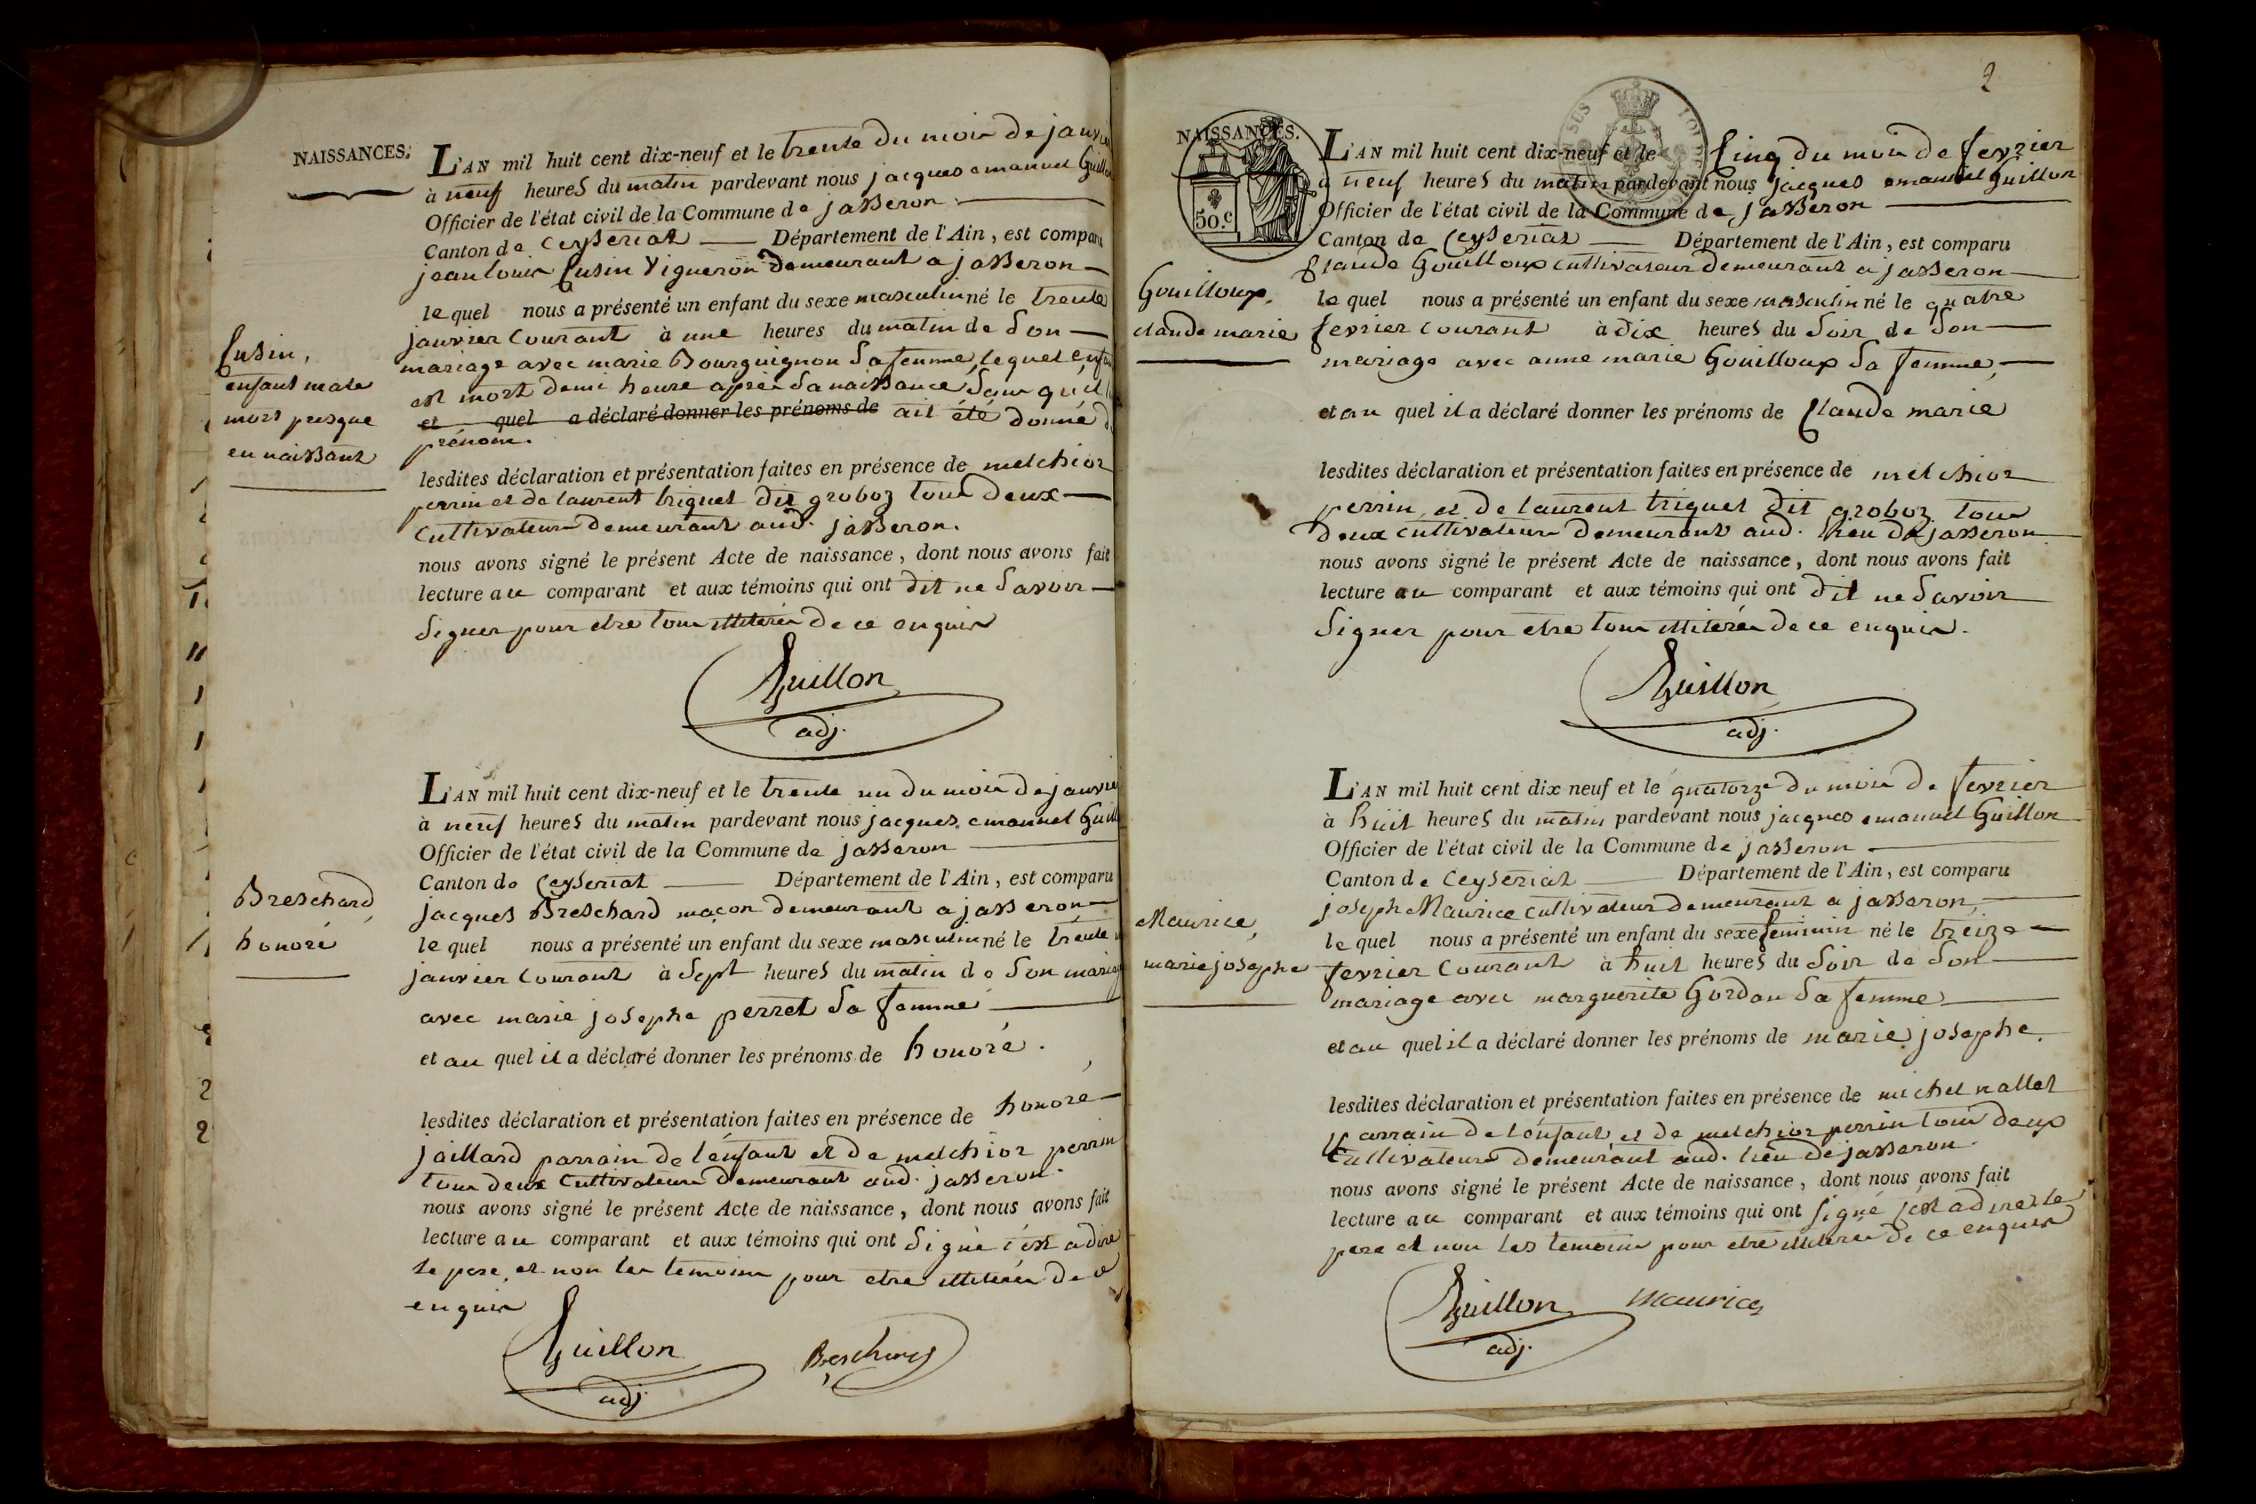 NAISSANCES.
L'AN mil huit cent dix-neuf et le trente du mois de janvier
à neuf heures du matin pardevant nous jacques emanuel Guillon
Officier de l'état civil de la Commune de jasseron
Canton de Ceyseriat Département de l'Ain, est comparu
jean louis Cusin Vigneron demeurant a jasseron
lequel nous a présenté un enfant du sexe masculin né le trente
janvier Courant à une heures du matin de Son
mariage avec marie Bourguignon Sa femme, lequel enfant
est mort demi heure après Sa naissance, Sans qu'il
et quel a déclaré donner les prénoms de ait été donné de
prénom.
lesdites déclaration et présentation faites en présence de melchior
perrin et de laurent triquet dit groboz tous deux
Cultivateurs demeurant aud. jasseron.
nous avons signé le présent Acte de naissance, dont nous avons fait
lecture au comparant et aux témoins qui ont dit ne Savoir
Signer pour etre tous illiterés de ce enquis
Guillon
adj.
Cusin,
enfant male
mort presque
en naissant
L'AN mil huit cent dix-neuf et le trente un du mois de janvier
à neuf heures du matin pardevant nous jacques emanuel Guillon
Officier de l'état civil de la Commune de jasseron
Canton de Ceyseriat Département de l'Ain, est comparu
jacques Breschard maçon demeurant a jasseron
lequel nous a présenté un enfant du sexe masculin né le trente
janvier Courant à Sept heures du matin de Son mariage
avec marie josephe perret Sa femme
et au quel il a déclaré donner les prénoms de honoré.
lesdites déclaration et présentation faites en présence de honoré
jaillard parrain de l'enfant et de melchior perrin
tous deux Cultivateurs demeurant aud. jasseron.
nous avons signé le présent Acte de naissance, dont nous avons fait
lecture au comparant et aux témoins qui ont Signé c'est a dire
le pere, et non les temoins pour etre illiterés de ce
enquis
Guillon
adj.
Breschard
honoré
2
NAISSANCES.
50.c
L'AN mil huit cent dix-neuf et le Cinq du mois de fevrier
à neuf heures du matin pardevant nous jacques emanuel Guillon
Officier de l'état civil de la Commune de jasseron
Canton de Ceyseriat Département de l'Ain, est comparu
Claude Gouilloux cultivateur demeurant a jasseron
lequel nous a présenté un enfant du sexe masculin né le quatre
fevrier courant à dix heures du Soir de Son
mariage avec anne marie Gouilloux Sa femme,
et au quel il a déclaré donner les prénoms de Claude marie
lesdites déclaration et présentation faites en présence de melchior
perrin, et de laurent triquet dit groboz tous
deux cultivateurs demeurant aud. lieu de jasseron
nous avons signé le présent Acte de naissance, dont nous avons fait
lecture au comparant et aux témoins qui ont dit ne Savoir
Signer pour etre tous illiterés de ce enquis.
Guillon
adj.
Gouilloux,
claude marie
L'AN mil huit cent dix neuf et le quatorze du mois de fevrier
à huit heures du matin pardevant nous jacques emanuel Guillon
Officier de l'état civil de la Commune de jasseron
Canton de Ceyseriat Département de l'Ain, est comparu
joseph Maurice cultivateur demeurant a jasseron,
lequel nous a présenté un enfant du sexe feminin né le treize
fevrier Courant à huit heures du Soir de Son
mariage avec marguerite Gordan Sa femme
et au quel il a déclaré donner les prénoms de marie josephe.
lesdites déclaration et présentation faites en présence de michel nallet
parrain de l'enfant, et de melchior perrin tous deux
Cultivateurs demeurant aud. lieu de jasseron.
nous avons signé le présent Acte de naissance, dont nous avons fait
lecture au comparant et aux témoins qui ont Signé c'est a dire le
pere et non les temoins pour etre illiterés de ce enquis
Guillon Maurice
adj.
Maurice,
marie josephe